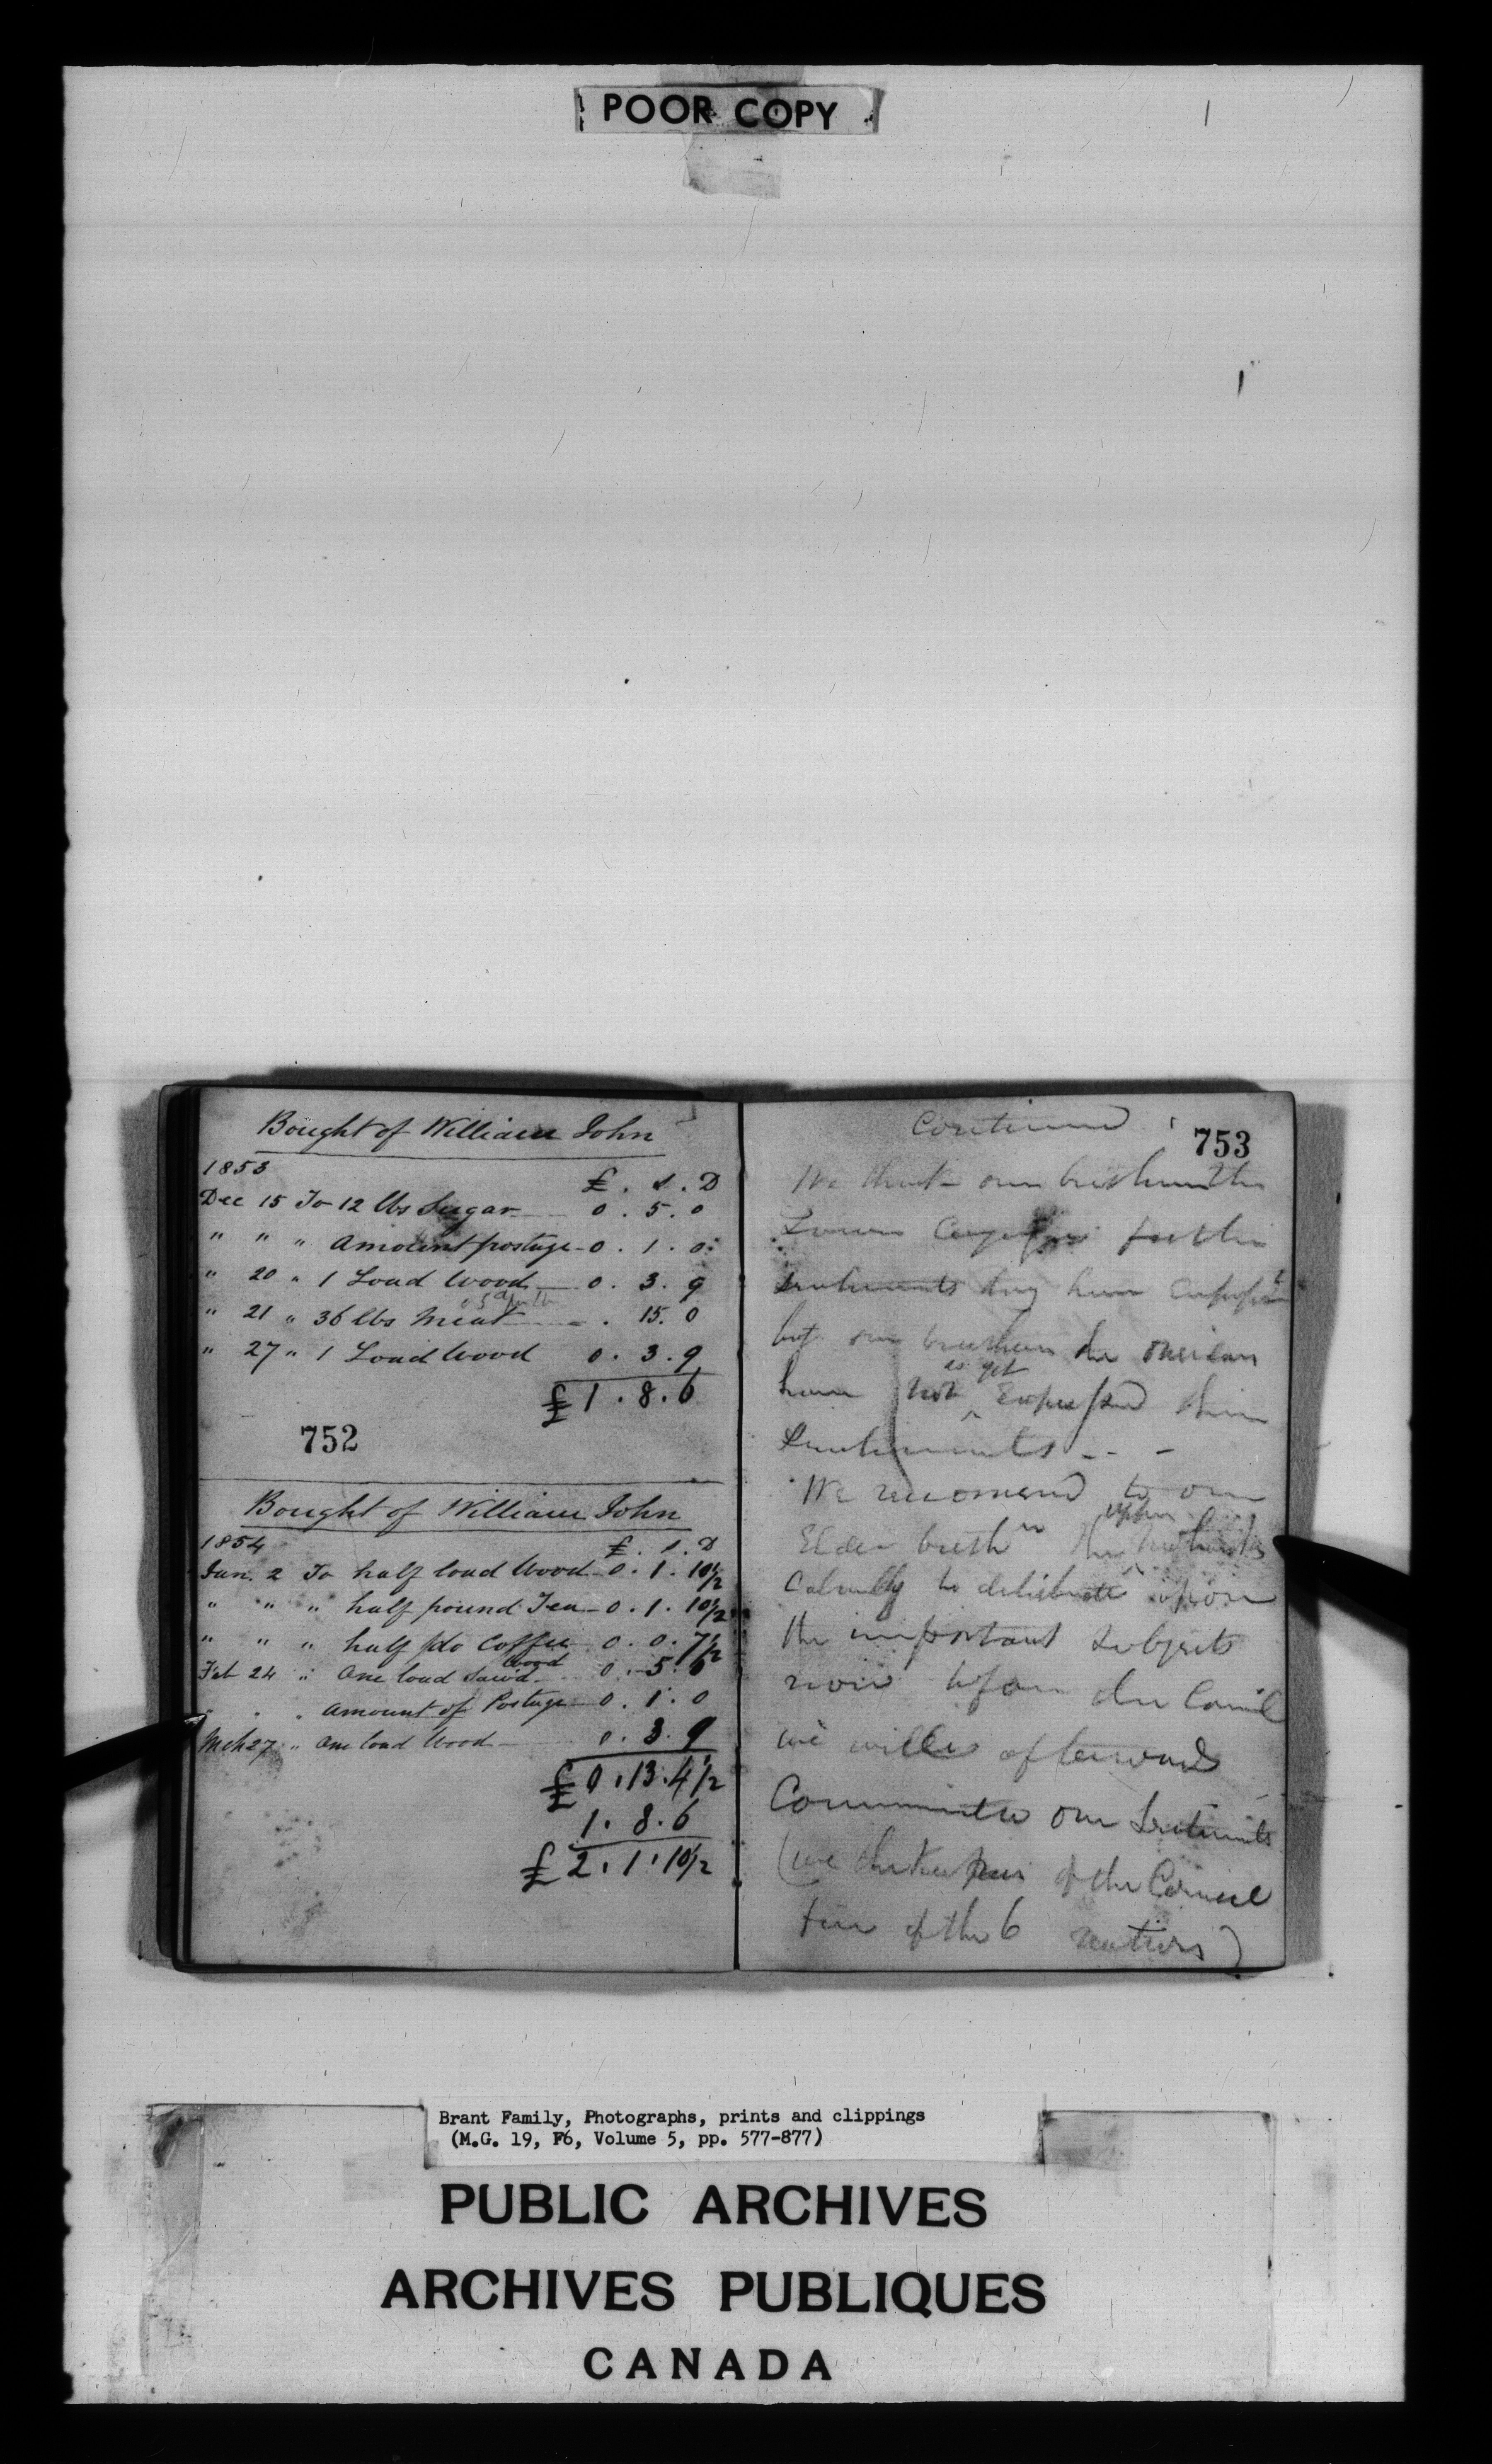 POOR COPY
Bought of William John
1853
£ . s . D
Dec 15 To 12 lbs Sugar 0 . 5 . 0
" " " Amount postage - 0 . 1 . 0
" 20 " 1 Load Wood 0 . 3 . 9
" 21 " 36 lbs Meat . 15 . 0
" 27 " 1 Load Wood 0 . 3 . 9
£ 1 . 8 . 6
752
Bought of William John
1854
£ . s . D
Jan. 2 To half load Wood - 0 . 1 . 10½
" " " half pound Tea - 0 . 1 . 10½
" " " half do Coffee 0 . 0 . 7½
Wood
Feb 24 " One load Saw'd 0 . 5
" " " Amount of Postage 0 . 1 . 0
Mch 27 " One load Wood 0 . 3 . 9
£ 0 . 13 . 4½
1 . 8 . 6
£ 2 . 1 . 10½
Continued
753
We thank our brethren the
Lower Cayugas for their
sentiments they have
but our brethren the
as yet
have not ^ Expressed their
Sentiments - - -
We recomend to our
upper
Elder breth^rn the ^ Mohawks
Calmly to deliberate upon
the important Subjects
now before the Council
we will afterwards
our Sentiments
(we the of the Council
fire of the 6 nations)
Brant Family, Photographs, prints and clippings
(M.G. 19, F6, Volume 5, pp. 577-877)
PUBLIC ARCHIVES
ARCHIVES PUBLIQUES
CANADA